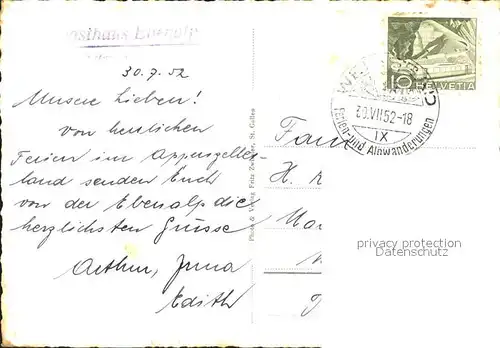 Gasthaus Ebenalp
30.7.52
Unsere Lieben!
Von herrlichen
Ferien im Appenzeller-
land senden Euch
von der Ebenalp die
herzlichsten Grüsse
Arthur, Irma
Edith
Photo & Verlag Fritz Zwicker, St. Gallen
10 HELVETIA
30.VII.52-18
IX
Ferien- und Alpwanderungen
H.
privacy protection
Datenschutz